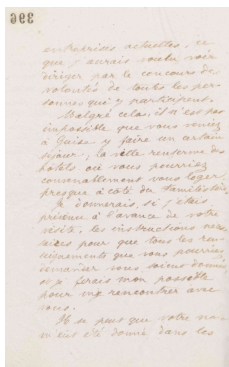 396
entreprises actuelles, ce
que j'aurais voulu voir
diriger par le concours de
volontés de toutes les per-
sonnes qui y participent.
Malgré cela, il n'est pas
impossible que vous veniez
à Guise y faire un certain
séjour, la ville renferme des
hôtels où vous pourriez
convenablement vous loger
presque à côté du familistère.
Je donnerais, si j'étais
prévenu à l'avance de votre
visite, les instructions néces-
saires pour que tous les ren-
seignements que vous pourriez
demander vous soient donnés,
et je ferais mon possible
pour me rencontrer avec
vous.
Il se peut que votre nom
m'ait été donné dans les